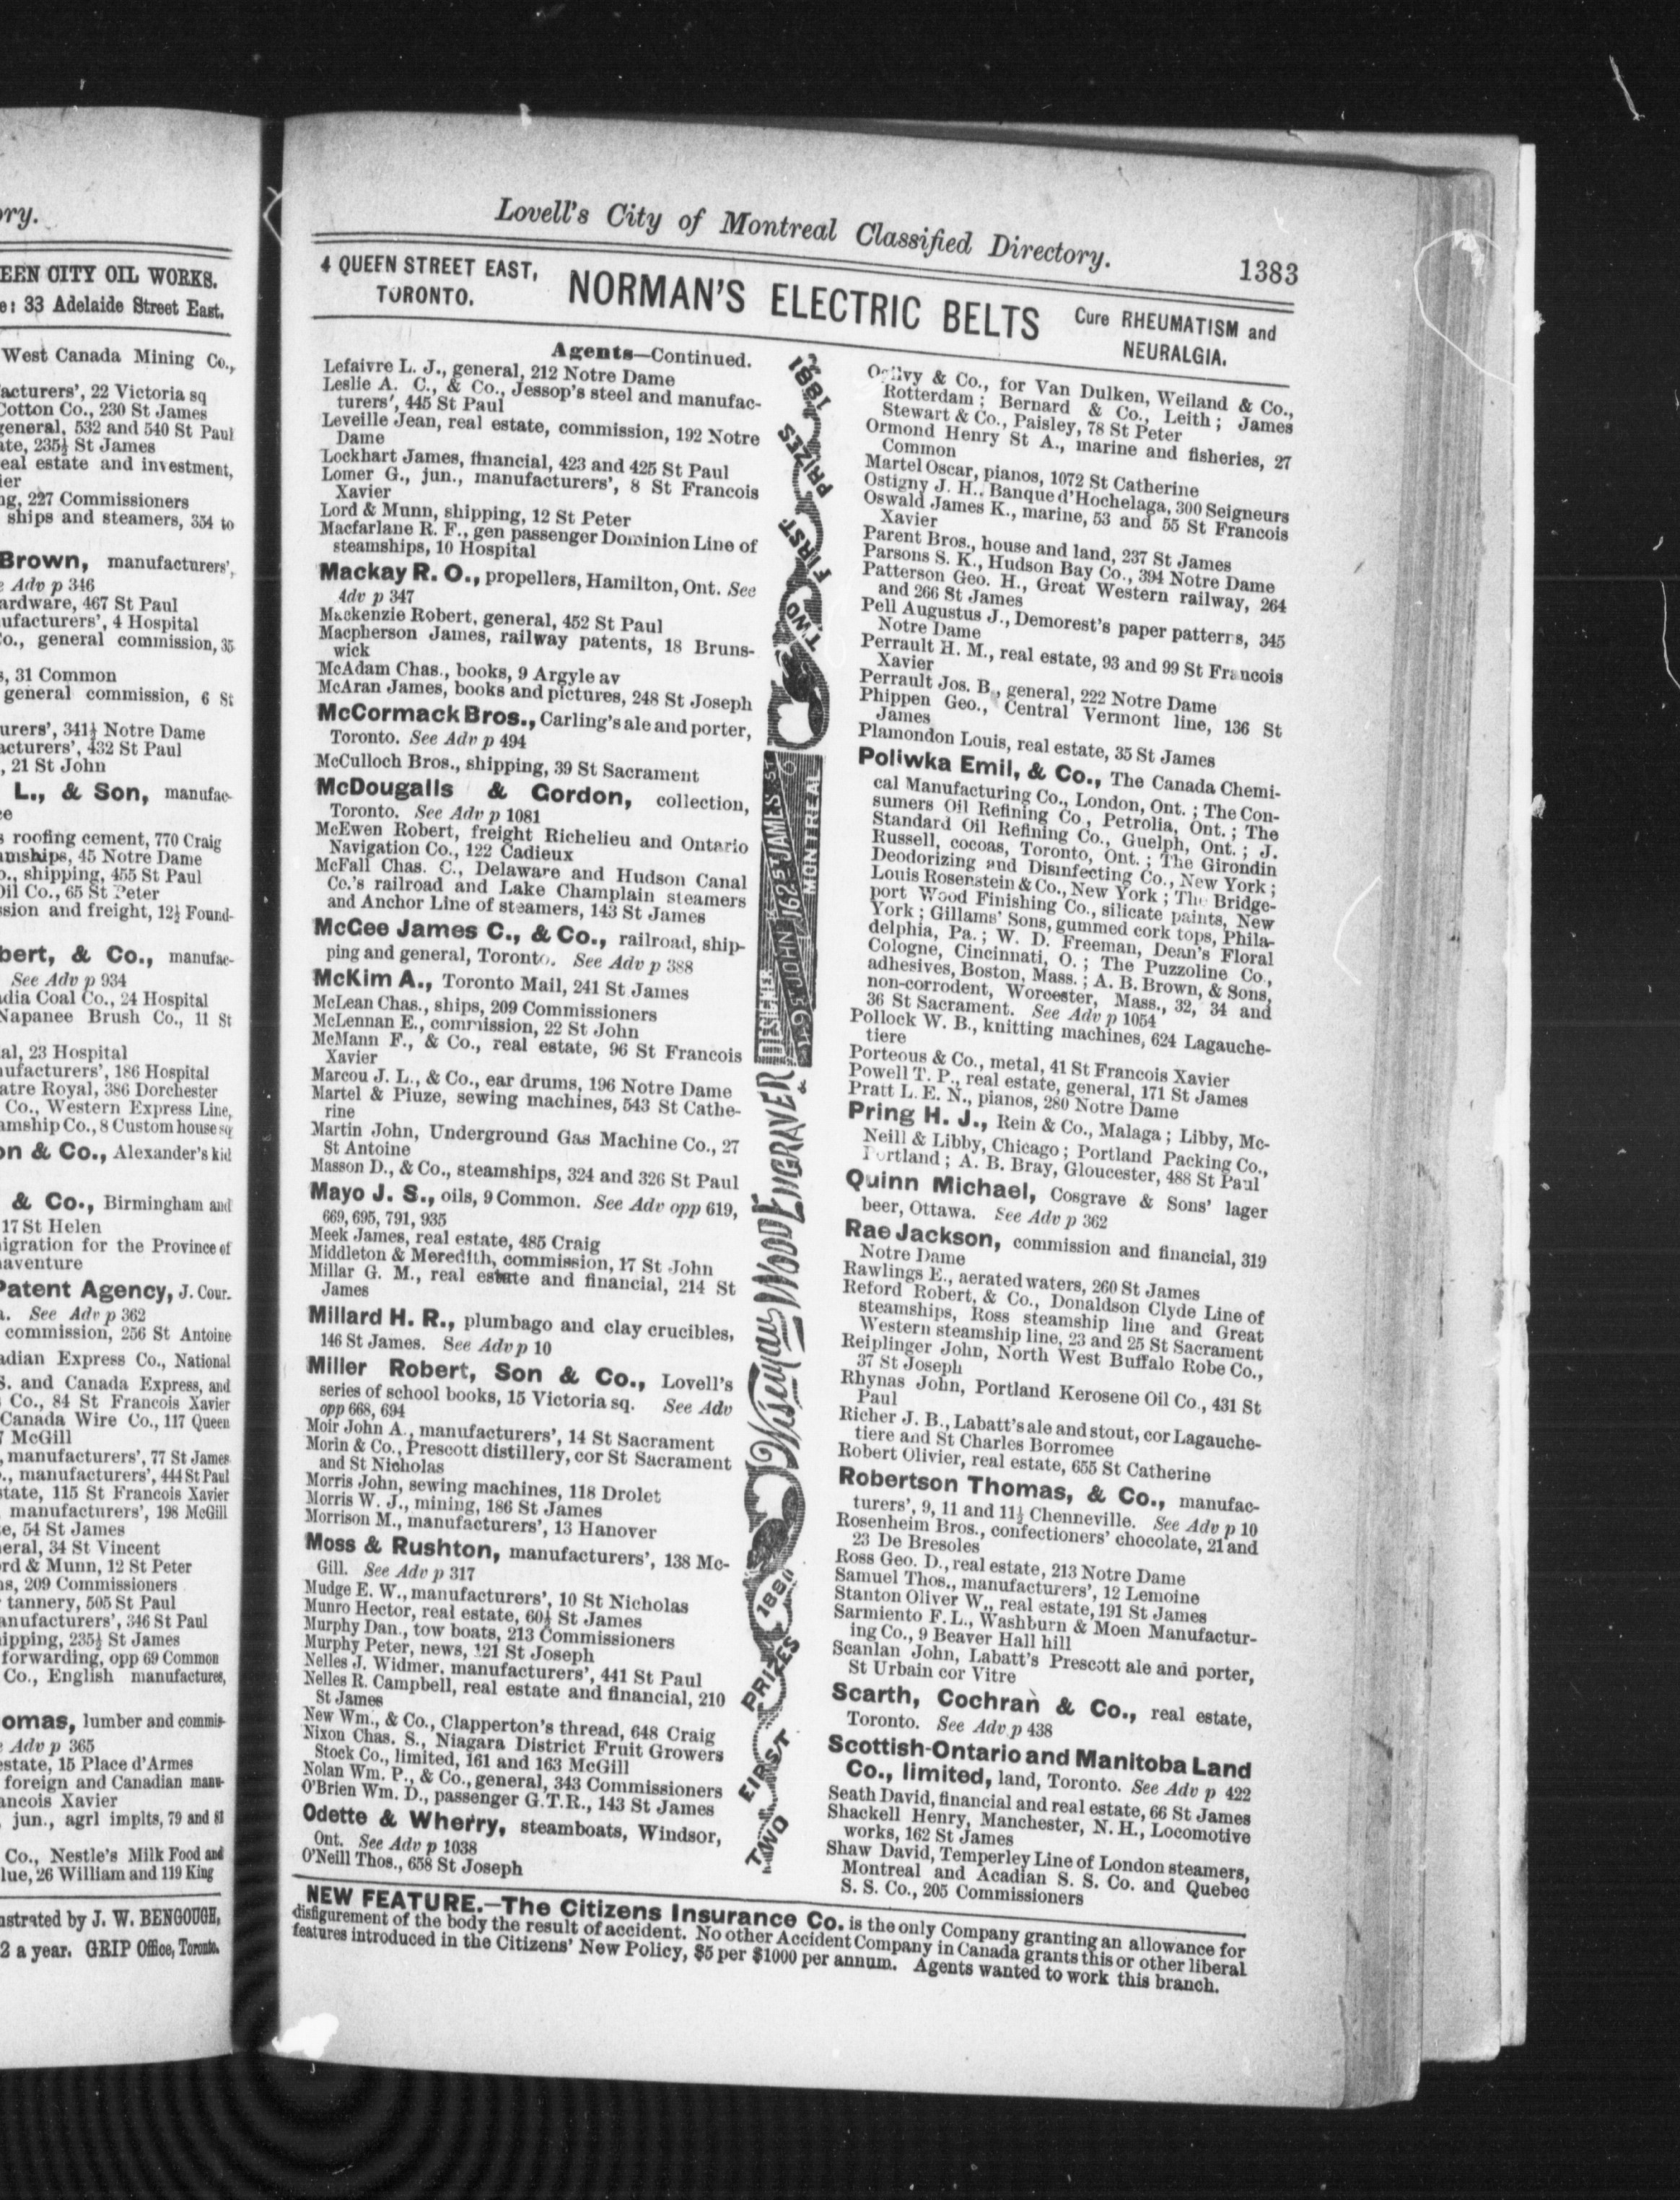 ory.
EEN CITY OIL WORKS.
e: 33 Adelaide Street East.
West Canada Mining Co.,
acturers', 22 Victoria sq
Cotton Co., 230 St James
general, 532 and 540 St Paul
ate, 235½ St James
eal estate and investment,
ier
ng, 227 Commissioners
ships and steamers, 354 to
Brown, manufacturers',
e Adv p 346
ardware, 467 St Paul
ufacturers', 4 Hospital
Co., general commission, 35
s, 31 Common
general commission, 6 St
urers', 341½ Notre Dame
acturers', 432 St Paul
, 21 St John
L., & Son, manufac-
ce
s roofing cement, 770 Craig
amships, 45 Notre Dame
o., shipping, 455 St Paul
Oil Co., 65 St Peter
ssion and freight, 12½ Found-
bert, & Co., manufac-
See Adv p 934
adia Coal Co., 24 Hospital
Napanee Brush Co., 11 St
al, 23 Hospital
nufacturers', 186 Hospital
atre Royal, 386 Dorchester
Co., Western Express Line,
amship Co., 8 Custom house sq
on & Co., Alexander's kid
& Co., Birmingham and
17 St Helen
igration for the Province of
aventure
Patent Agency, J. Cour-
a. See Adv p 362
commission, 256 St Antoine
adian Express Co., National
S. and Canada Express, and
Co., 84 St Francois Xavier
Canada Wire Co., 117 Queen
7 McGill
, manufacturers', 77 St James
., manufacturers', 444 St Paul
state, 115 St Francois Xavier
manufacturers', 198 McGill
e, 54 St James
eral, 34 St Vincent
ord & Munn, 12 St Peter
ns, 209 Commissioners
tannery, 505 St Paul
anufacturers', 346 St Paul
ipping, 235½ St James
forwarding, opp 69 Common
Co., English manufactures,
omas, lumber and commis-
e Adv p 365
estate, 15 Place d'Armes
foreign and Canadian manu-
ancois Xavier
jun., agrl implts, 79 and 81
Co., Nestle's Milk Food and
lue, 26 William and 119 King
nstrated by J. W. BENGOUGH,
2 a year. GRIP Office, Toronto.
Lovell's City of Montreal Classified Directory. 1383
4 QUEEN STREET EAST, TORONTO.
NORMAN'S ELECTRIC BELTS
Cure RHEUMATISM and NEURALGIA.
Agents—Continued.
Lefaivre L. J., general, 212 Notre Dame
Leslie A. C., & Co., Jessop's steel and manufac-
turers', 445 St Paul
Leveille Jean, real estate, commission, 192 Notre
Dame
Lockhart James, financial, 423 and 425 St Paul
Lomer G., jun., manufacturers', 8 St Francois
Xavier
Lord & Munn, shipping, 12 St Peter
Macfarlane R. F., gen passenger Dominion Line of
steamships, 10 Hospital
Mackay R. O., propellers, Hamilton, Ont. See
Adv p 347
Mackenzie Robert, general, 452 St Paul
Macpherson James, railway patents, 18 Bruns-
wick
McAdam Chas., books, 9 Argyle av
McAran James, books and pictures, 248 St Joseph
McCormack Bros., Carling's ale and porter,
Toronto. See Adv p 494
McCulloch Bros., shipping, 39 St Sacrament
McDougalls & Gordon, collection,
Toronto. See Adv p 1081
McEwen Robert, freight Richelieu and Ontario
Navigation Co., 122 Cadieux
McFall Chas. C., Delaware and Hudson Canal
Co.'s railroad and Lake Champlain steamers
and Anchor Line of steamers, 143 St James
McGee James C., & Co., railroad, ship-
ping and general, Toronto. See Adv p 388
McKim A., Toronto Mail, 241 St James
McLean Chas., ships, 209 Commissioners
McLennan E., commission, 22 St John
McMann F., & Co., real estate, 96 St Francois
Xavier
Marcou J. L., & Co., ear drums, 196 Notre Dame
Martel & Piuze, sewing machines, 543 St Cathe-
rine
Martin John, Underground Gas Machine Co., 27
St Antoine
Masson D., & Co., steamships, 324 and 326 St Paul
Mayo J. S., oils, 9 Common. See Adv opp 619,
669, 695, 791, 935
Meek James, real estate, 485 Craig
Middleton & Meredith, commission, 17 St John
Millar G. M., real estate and financial, 214 St
James
Millard H. R., plumbago and clay crucibles,
146 St James. See Adv p 10
Miller Robert, Son & Co., Lovell's
series of school books, 15 Victoria sq. See Adv
opp 668, 694
Moir John A., manufacturers', 14 St Sacrament
Morin & Co., Prescott distillery, cor St Sacrament
and St Nicholas
Morris John, sewing machines, 118 Drolet
Morris W. J., mining, 186 St James
Morrison M., manufacturers', 13 Hanover
Moss & Rushton, manufacturers', 138 Mc-
Gill. See Adv p 317
Mudge E. W., manufacturers', 10 St Nicholas
Munro Hector, real estate, 60½ St James
Murphy Dan., tow boats, 213 Commissioners
Murphy Peter, news, 121 St Joseph
Nelles J. Widmer, manufacturers', 441 St Paul
Nelles R. Campbell, real estate and financial, 210
St James
New Wm., & Co., Clapperton's thread, 648 Craig
Nixon Chas. S., Niagara District Fruit Growers
Stock Co., limited, 161 and 163 McGill
Nolan Wm. P., & Co., general, 343 Commissioners
O'Brien Wm. D., passenger G.T.R., 143 St James
Odette & Wherry, steamboats, Windsor,
Ont. See Adv p 1038
O'Neill Thos., 658 St Joseph
TWO FIRST PRIZES 1880
Wiseman Wood Engraver
& DESIGNER
195 ST JOHN 162 ST JAMES ST
MONTREAL
TWO FIRST PRIZES 1881
Ogilvy & Co., for Van Dulken, Weiland & Co.,
Rotterdam; Bernard & Co., Leith; James
Stewart & Co., Paisley, 78 St Peter
Ormond Henry St A., marine and fisheries, 27
Common
Martel Oscar, pianos, 1072 St Catherine
Ostigny J. H., Banque d'Hochelaga, 300 Seigneurs
Oswald James K., marine, 53 and 55 St Francois
Xavier
Parent Bros., house and land, 237 St James
Parsons S. K., Hudson Bay Co., 394 Notre Dame
Patterson Geo. H., Great Western railway, 264
and 266 St James
Pell Augustus J., Demorest's paper patterns, 345
Notre Dame
Perrault H. M., real estate, 93 and 99 St Francois
Xavier
Perrault Jos. B., general, 222 Notre Dame
Phippen Geo., Central Vermont line, 136 St
James
Plamondon Louis, real estate, 35 St James
Poliwka Emil, & Co., The Canada Chemi-
cal Manufacturing Co., London, Ont.; The Con-
sumers Oil Refining Co., Petrolia, Ont.; The
Standard Oil Refining Co., Guelph, Ont.; J.
Russell, cocoas, Toronto, Ont.; The Girondin
Deodorizing and Disinfecting Co., New York;
Louis Rosenstein & Co., New York; The Bridge-
port Wood Finishing Co., silicate paints, New
York; Gillams' Sons, gummed cork tops, Phila-
delphia, Pa.; W. D. Freeman, Dean's Floral
Cologne, Cincinnati, O.; The Puzzoline Co.,
adhesives, Boston, Mass.; A. B. Brown, & Sons,
non-corrodent, Worcester, Mass., 32, 34 and
36 St Sacrament. See Adv p 1054
Pollock W. B., knitting machines, 624 Lagauche-
tiere
Porteous & Co., metal, 41 St Francois Xavier
Powell T. P., real estate, general, 171 St James
Pratt L. E. N., pianos, 280 Notre Dame
Pring H. J., Rein & Co., Malaga; Libby, Mc-
Neill & Libby, Chicago; Portland Packing Co.,
Portland; A. B. Bray, Gloucester, 488 St Paul
Quinn Michael, Cosgrave & Sons' lager
beer, Ottawa. See Adv p 362
Rae Jackson, commission and financial, 319
Notre Dame
Rawlings E., aerated waters, 260 St James
Reford Robert, & Co., Donaldson Clyde Line of
steamships, Ross steamship line and Great
Western steamship line, 23 and 25 St Sacrament
Reiplinger John, North West Buffalo Robe Co.,
37 St Joseph
Rhynas John, Portland Kerosene Oil Co., 431 St
Paul
Richer J. B., Labatt's ale and stout, cor Lagauche-
tiere and St Charles Borromee
Robert Olivier, real estate, 655 St Catherine
Robertson Thomas, & Co., manufac-
turers', 9, 11 and 11½ Chenneville. See Adv p 10
Rosenheim Bros., confectioners' chocolate, 21 and
23 De Bresoles
Ross Geo. D., real estate, 213 Notre Dame
Samuel Thos., manufacturers', 12 Lemoine
Stanton Oliver W., real estate, 191 St James
Sarmiento F. L., Washburn & Moen Manufactur-
ing Co., 9 Beaver Hall hill
Scanlan John, Labatt's Prescott ale and porter,
St Urbain cor Vitre
Scarth, Cochran & Co., real estate,
Toronto. See Adv p 438
Scottish-Ontario and Manitoba Land
Co., limited, land, Toronto. See Adv p 422
Seath David, financial and real estate, 66 St James
Shackell Henry, Manchester, N. H., Locomotive
works, 162 St James
Shaw David, Temperley Line of London steamers,
Montreal and Acadian S. S. Co. and Quebec
S. S. Co., 205 Commissioners
NEW FEATURE.—The Citizens Insurance Co. is the only Company granting an allowance for
disfigurement of the body the result of accident. No other Accident Company in Canada grants this or other liberal
features introduced in the Citizens' New Policy, $5 per $1000 per annum. Agents wanted to work this branch.